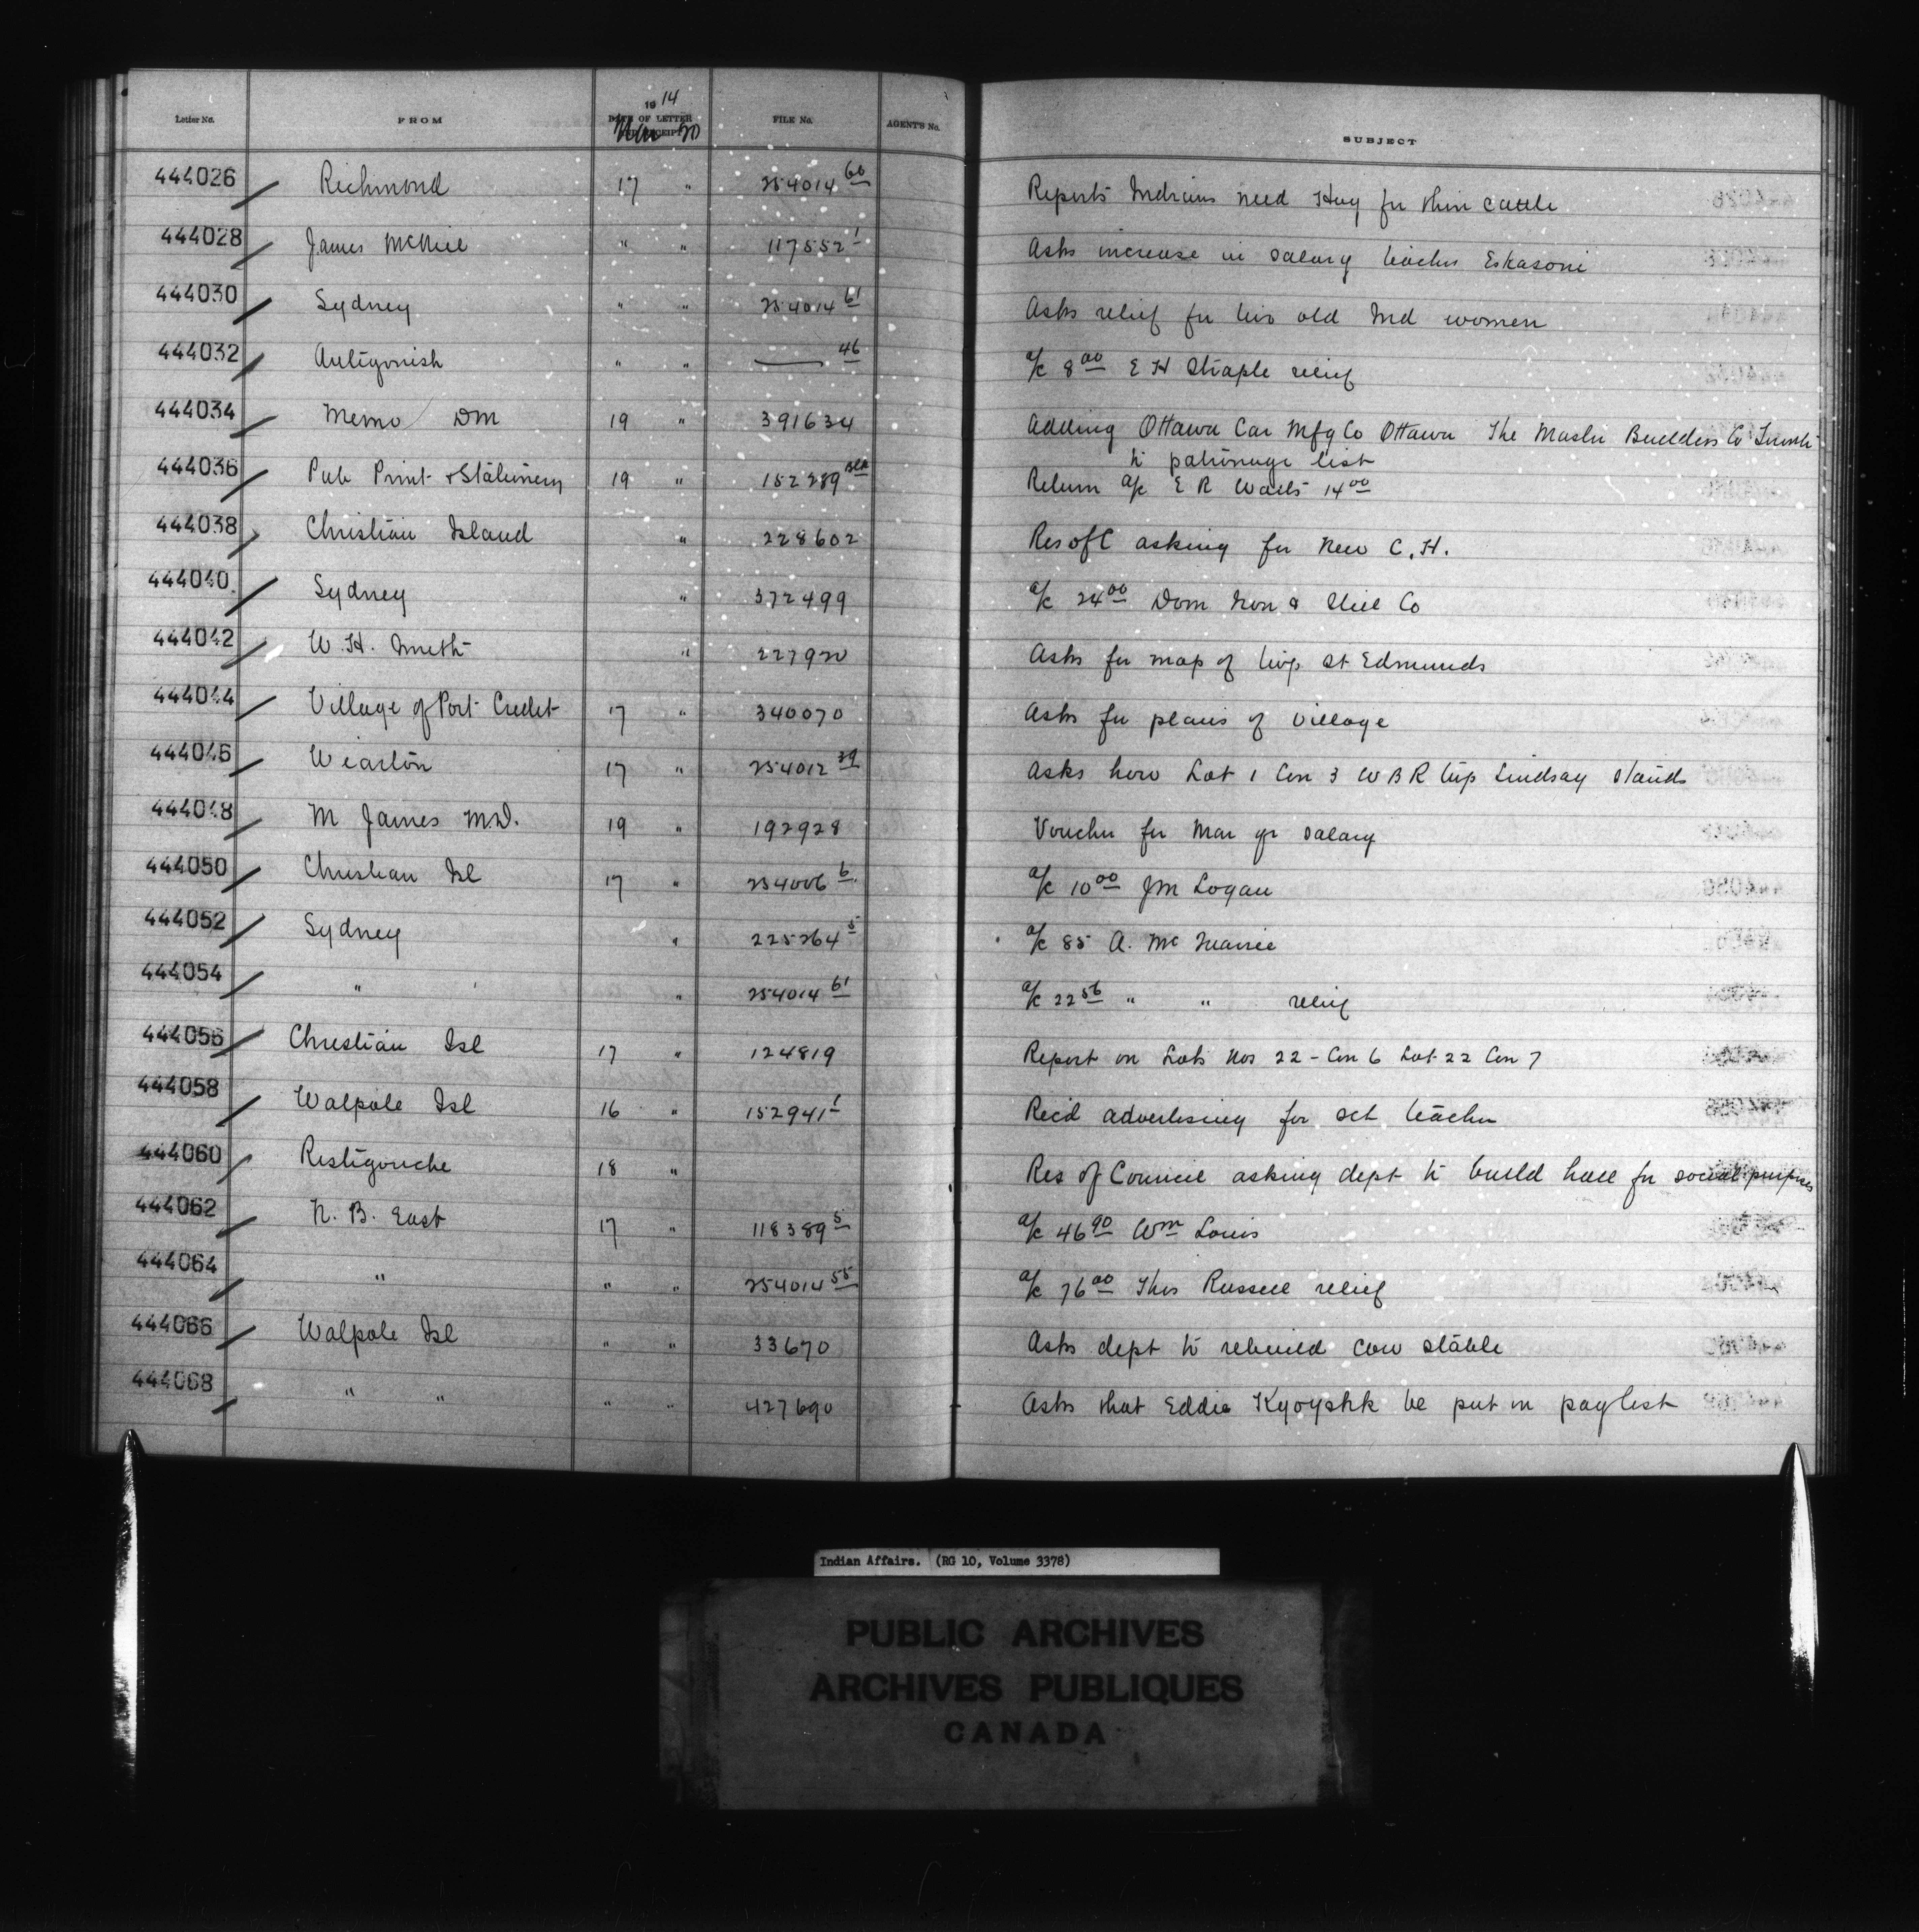 Letter No. FROM 1914 DATE OF LETTER Mar 20 FILE No. AGENT'S No. SUBJECT
444026 Richmond 17 " 254014 60 Reports Indians need Hay for their cattle
444028 James McNeil " " 117552 1 Asks increase in salary teacher Eskasoni
444030 Sydney " " 254014 61 Asks relief for two old Ind women
444032 Antigonish " " — 46 a/c 8 00 E H Straple relief
444034 Memo DM 19 " 391634 Adding Ottawa Car Mfg Co Ottawa The Master Builders Co
to patronage list
444036 Pub Print & Stationery 19 " 152289 Return a/c E R Watts 14 00
444038 Christian Island " 228602 Res of C asking for New C.H.
444040 Sydney " 372499 a/c 24 00 Dom Iron & Steel Co
444042 W.H. Smith " 227920 Asks for map of twp St Edmunds
444044 Village of Port Credit 17 " 340070 Asks for plans of village
444046 Wiarton 17 " 254012 39 Asks how Lot 1 Con 3 W B R twp Lindsay stands
444048 M James M.D. 19 " 192928 Voucher for Mar qr salary
444050 Christian Isl 17 " 254006 6 a/c 10 00 JM Logan
444052 Sydney " 225264 5 a/c 85 A. Mc
444054 " " 254014 61 a/c 22 56 " " relief
444056 Christian Isl 17 " 124819 Report on Lots Nos 22 - Con 6 Lot 22 Con 7
444058 Walpole Isl 16 " 152941 1 Rec'd advertising for sch teacher
444060 Restigouche 18 " Res of Council asking dept to build hall for social purposes
444062 N. B. East 17 " 118389 5 a/c 46 90 Wm Louis
444064 " " " 254014 55 a/c 76 00 Thos Russell relief
444066 Walpole Isl " " 33670 Asks dept to rebuild cow stable
444068 " " " " 427690 Asks that Eddie Kyoyshk be put on paylist
Indian Affairs. (RG 10, Volume 3378)
PUBLIC ARCHIVES
ARCHIVES PUBLIQUES
CANADA